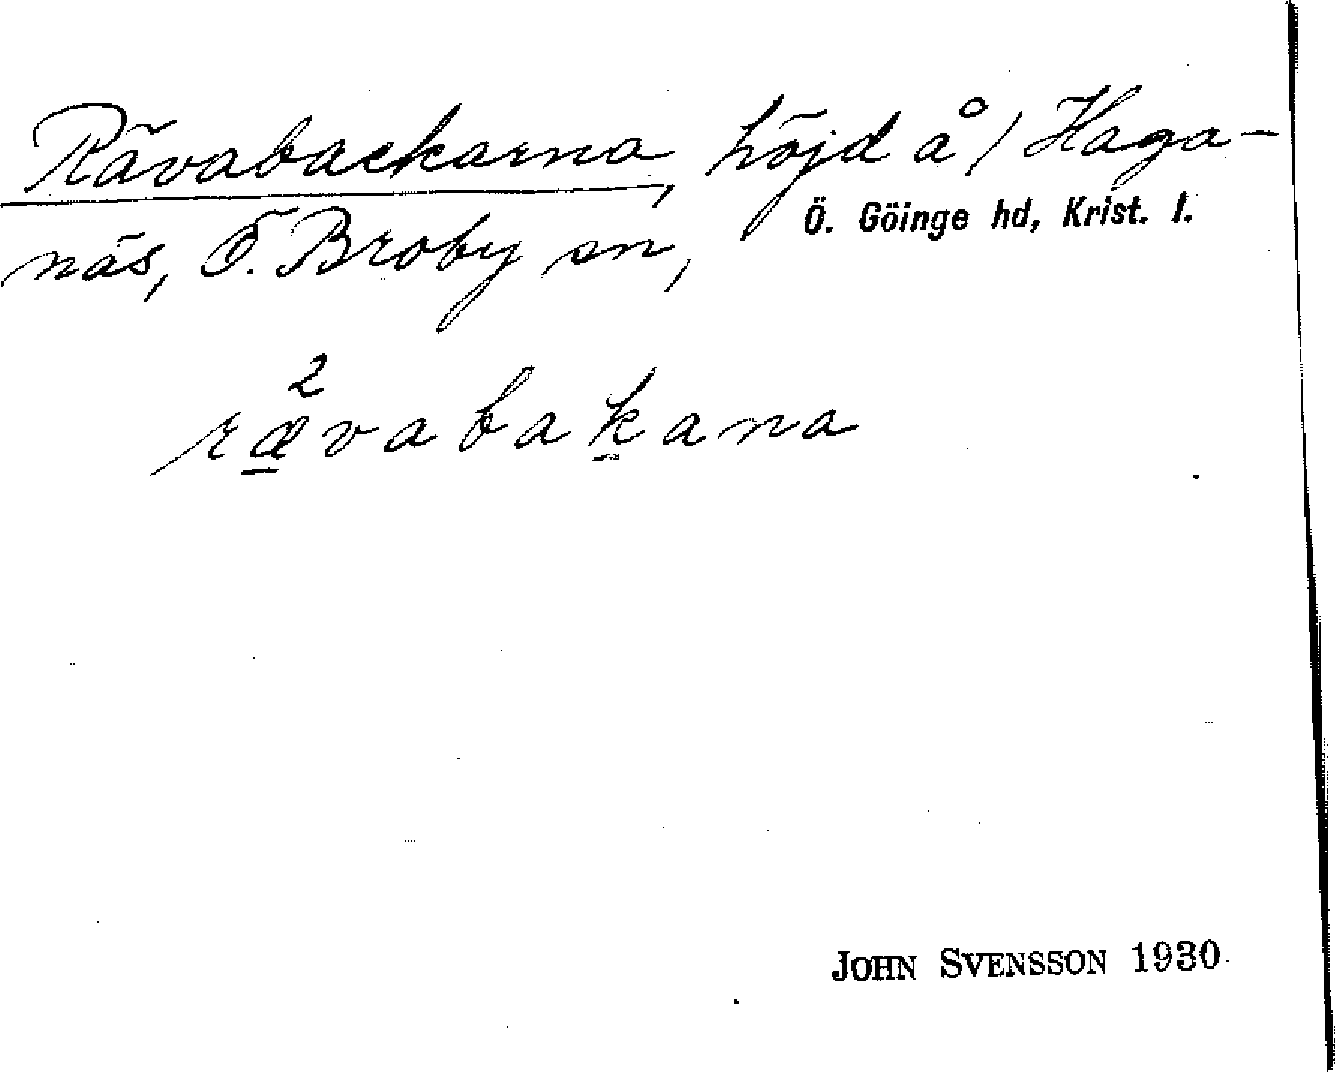 Rävabackarna, höjd å / Haga-
näs, Ö. Broby sn,
Ö. Göinge hd, Krist. l.
2
rævabakana
JOHN SVENSSON 1930